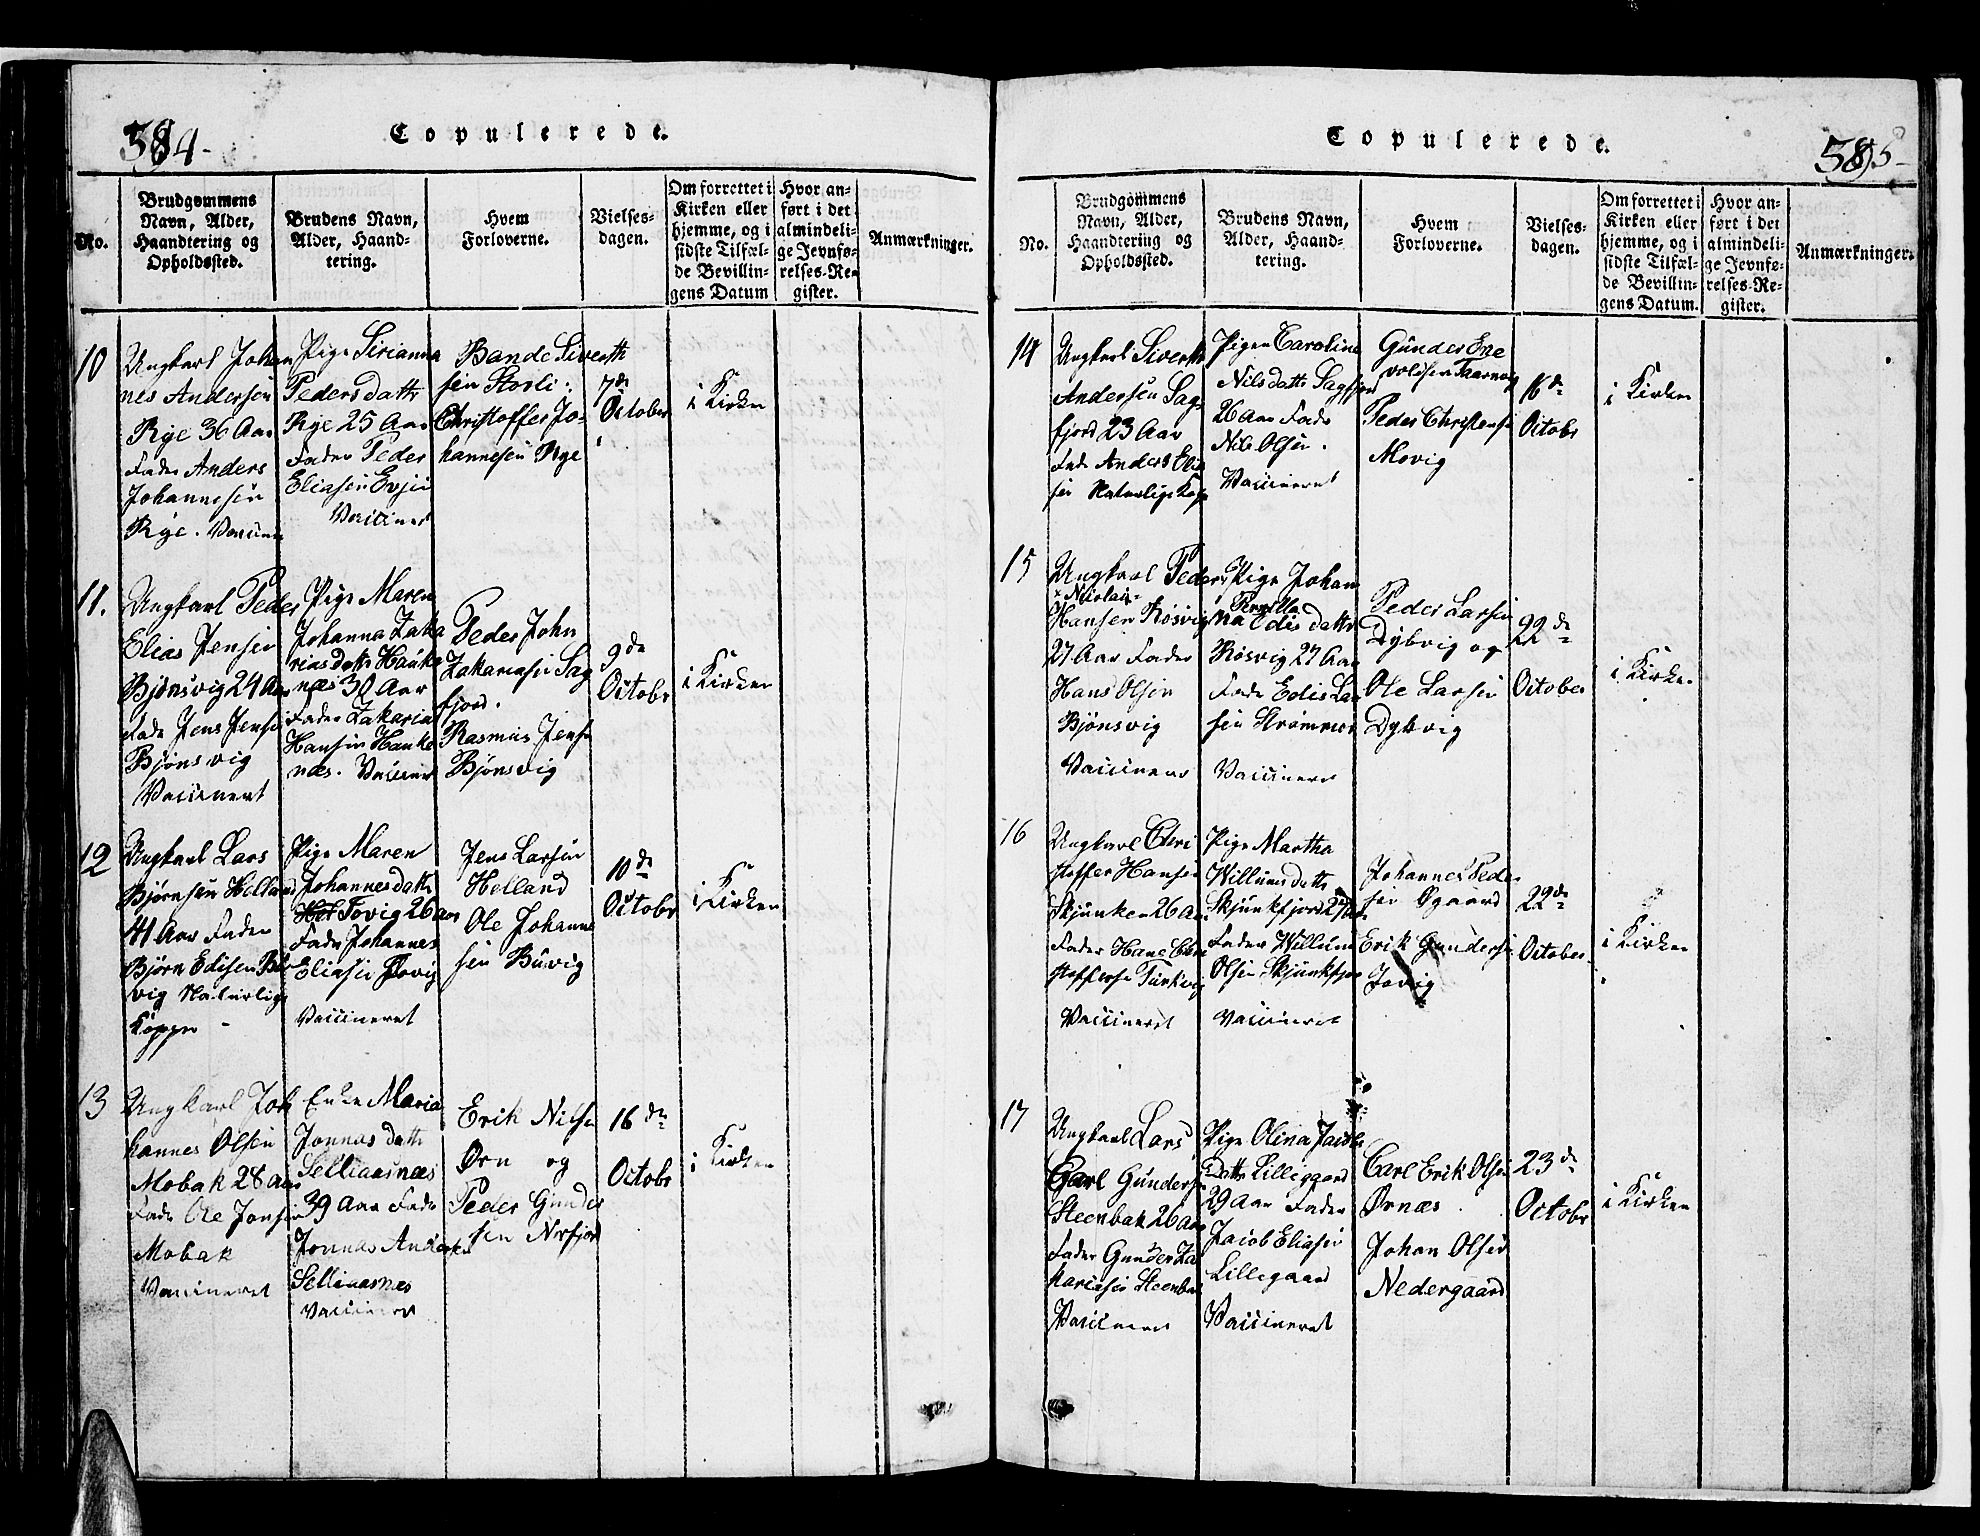 584-
Copulerede.
No.
Brudgommens
Navn, Alder,
Haandtering og
Opholdssted.
Brudens Navn,
Alder, Haand-
tering.
Hvem
Forloverne.
Vielses-
dagen.
Om forrettet i
Kirken eller
hjemme, og i
sidste Tilfæl-
de Bevillin-
gens Datum
Hvor an-
ført i det
almindeli-
ge Jevnfø-
relses-Re-
gister.
Anmærkninger.
10
Ungkarl Johan
nes Andersen
Rye 36 Aar
Fader Anders
Johannesen
Rye.
Pige Sirianna
Pedersdattr
Rye 25 Aar
Fader Peder
Eliasen Evjen
Bande Siverth
sen Storli.
Christoffer Jo-
hannesen Rye
7de
October
i Kirken
11.
Ungkarl Peder
Elias Jensen
Bjönsvig 24 Aar
Fader Jens Jensen
Bjönsvig
Vaccineret
Pige Maren
Johanna Zaka
riasdattr Hauke
næs 30 Aar
Fader Zakarias
Hansen Hauke
næs.
Peder John
Zakariasen Sag
fjord.
Rasmus Jensen
Bjönsvig
9de
Octobr
i Kirken
12
Ungkarl Lars
Björnsen Helland
41 Aar Fader
Björn Edisen Bu
vig Naturlige
Kopper
Pige Maren
Johannesdattr
Tovig 26 Aar
Fader Johannes
Eliasen Tovig
Vaccineret
Jens Larsen
Helland
Ole Johanne
sen Buvig
10de
Octobr
i Kirken
13
Ungkarl Joh
hannes Olsen
Mobak 28 Aar
Fader Ole Jonsen
Mobak
Vaccineret
Enke Maria
Jonnasdattr
Selliaasnæs
39 Aar Fader
Jonnas Andersen
Selliaasnæs
Vaccineret
Erik Nilsen
Örn og
Peder Gunder
sen Norfjord
16de
Octobr
i Kirken
Copulerede.
585-
No.
Brudgommens
Navn, Alder,
Haandtering og
Opholdssted.
Brudens Navn,
Alder, Haand-
tering.
Hvem
Forloverne.
Vielses-
dagen.
Om forrettet i
Kirken eller
hjemme, og i
sidste Tilfæl-
de Bevillin-
gens Datum.
Hvor an-
ført i det
almindeli-
ge Jevnfø-
relses-Re-
gister.
Anmærkninger.
14
Ungkarl Siverth
Andersen Sag-
fjord 23 Aar
Fader Anders Elia
sen Naturlige Kop
Pigen Caroline
Nilsdattr Sagfjord
26 Aar Fader
Nils Olsen.
Vaccineret
Gunder Ene
voldsen Taarnvig
Peder Christensen
Movig
16de
Octobr
i Kirken
15
Ungkarl Peder
× Nikolai ×
Hansen Rösvig
27 Aar Fader
Hans Olsen
Bjönsvig
Vaccineret
Pige Johan
Pernilla
na Edisdattr
Rösvig 27 Aar
Fader Edis Lar
sen Strömmen
Vaccineret
Peder Larsen
Dybvig og
Ole Larsen
Dybvig
22de
October
i Kirken
16
Ungkarl Chri
stoffer Hansen
Skjunken 26 Aar
Fader Hans Chri
stoffersen
Vaccineret
Pige Martha
Willumsdattr
Skjunkfjord
Fader Willum
Olsen Skjunkfjor
Vaccineret
Johannes Peder
sen Øgaard
Erik Gundersen
22de
October
i Kirken
17
Ungkarl Lars
Carl Gundersen
Steenbak 26 Aar
Fader Gunder Za
kariasen Steenbak
Vaccineret
Pige Olina Jacobs
Dattr Lilleggaard
29 Aar Fader
Jacob Eliasen
Lillegaard
Vaccineret
Carl Erik Olsen
Örnæs
Johan Olsen
Nedergaard
23de
Octobr
i Kirken